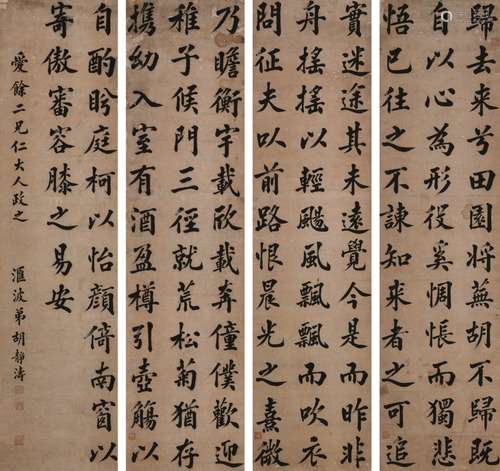 歸去来兮田園将蕪胡不歸既
自以心為形役奚惆悵而獨悲
悟已往之不諫知来者之可追
實迷途其未遠覺今是而昨非
舟摇摇以輕颺風飄飄而吹衣
問征夫以前路恨晨光之熹微
乃瞻衡宇載欣載奔僮僕歡迎
稚子候門三徑就荒松菊猶存
携幼入室有酒盈樽引壺觴以
自酌眄庭柯以怡顔倚南窗以
寄傲審容膝之易安
愛餘二兄仁大人政之
滙波弟胡静濤